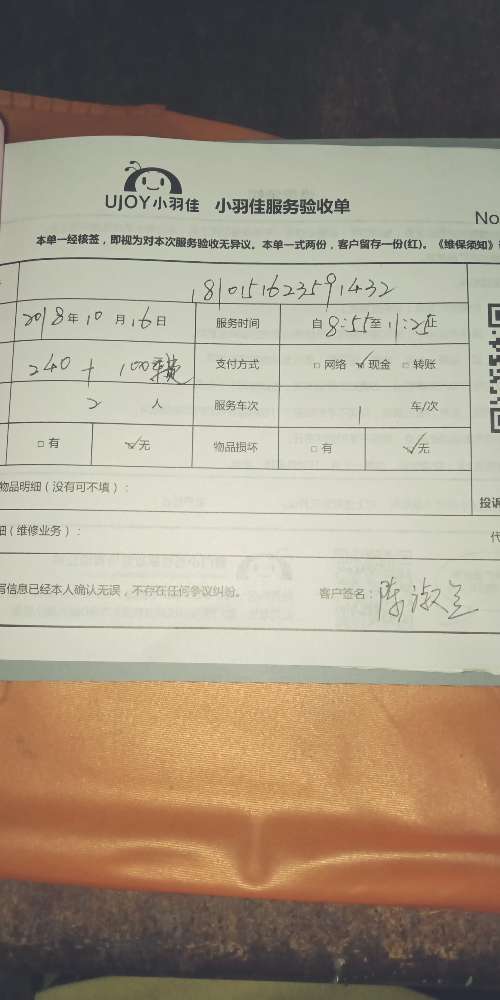 UJOY小羽佳 小羽佳服务验收单
No
本单一经核签，即视为对本次服务验收无异议。本单一式两份，客户留存一份(红)。《维保须知》
1810151623591432
2018年10月16日 服务时间 自8:55至11:25止
240+100 支付方式 □网络 ✓现金 □转账
2人 服务车次 1 车/次
□有 ✓无 物品损坏 □有 ✓无
物品明细（没有可不填）：
投诉
细（维修业务）：
代
写信息已经本人确认无误，不存在任何争议纠纷。 客户签名：陈淑兰